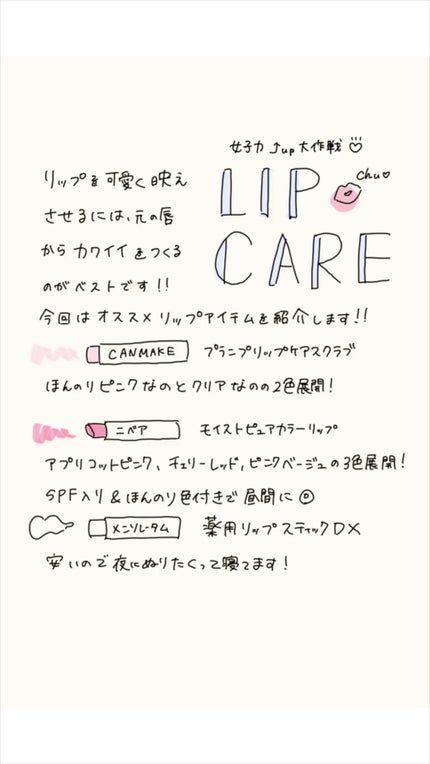 女子力↑up大作戦
LIP
chu♡
CARE
リップを可愛く映え
させるには、元の唇
からカワイイをつくる
のがベストです!!
今回はオススメリップアイテムを紹介します!!
CANMAKE プランプリップケアスクラブ
ほんのりピンクなのとクリアなのの2色展開!
ニベア モイストピュアカラーリップ
アプリコットピンク、チェリーレッド,ピンクベージュの3色展開!
SPF入り&ほんのり色付きで昼間に◎
メンソレータム 薬用リップスティックDX
安いので夜にぬりたくって寝てます!